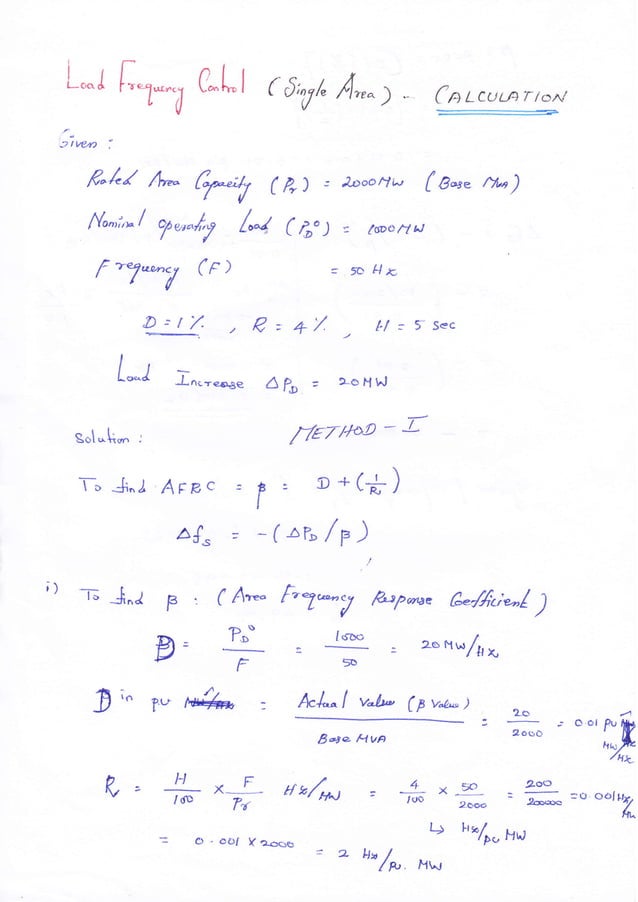 Load Frequency Control (Single Area) - CALCULATION
Given :
Rated Area Capacity (Pr) = 2000MW (Base MVA)
Nominal operating Load (PD°) = 1000MW
Frequency (F) = 50 Hz
D = 1 %. , R = 4 %. , H = 5 sec
Load Increase ΔPD = 20MW
Solution : METHOD - I
To find AFRC = β = D + (1/R)
Δfs = -(ΔPD/β)
i) To find β : (Area Frequency Response Coefficient)
D = PD°/F = 1000/50 = 20 MW/Hz
D in pu = Actual Value (B Value)/Base MVA = 20/2000 = 0.01 pu MW/Hz
R = H/100 × F/Pr Hz/MW = 4/100 × 50/2000 = 200/200000 = 0.001 Hz/MW
↳ Hz/pu MW
= 0.001 × 2000 = 2 Hz/pu. MW